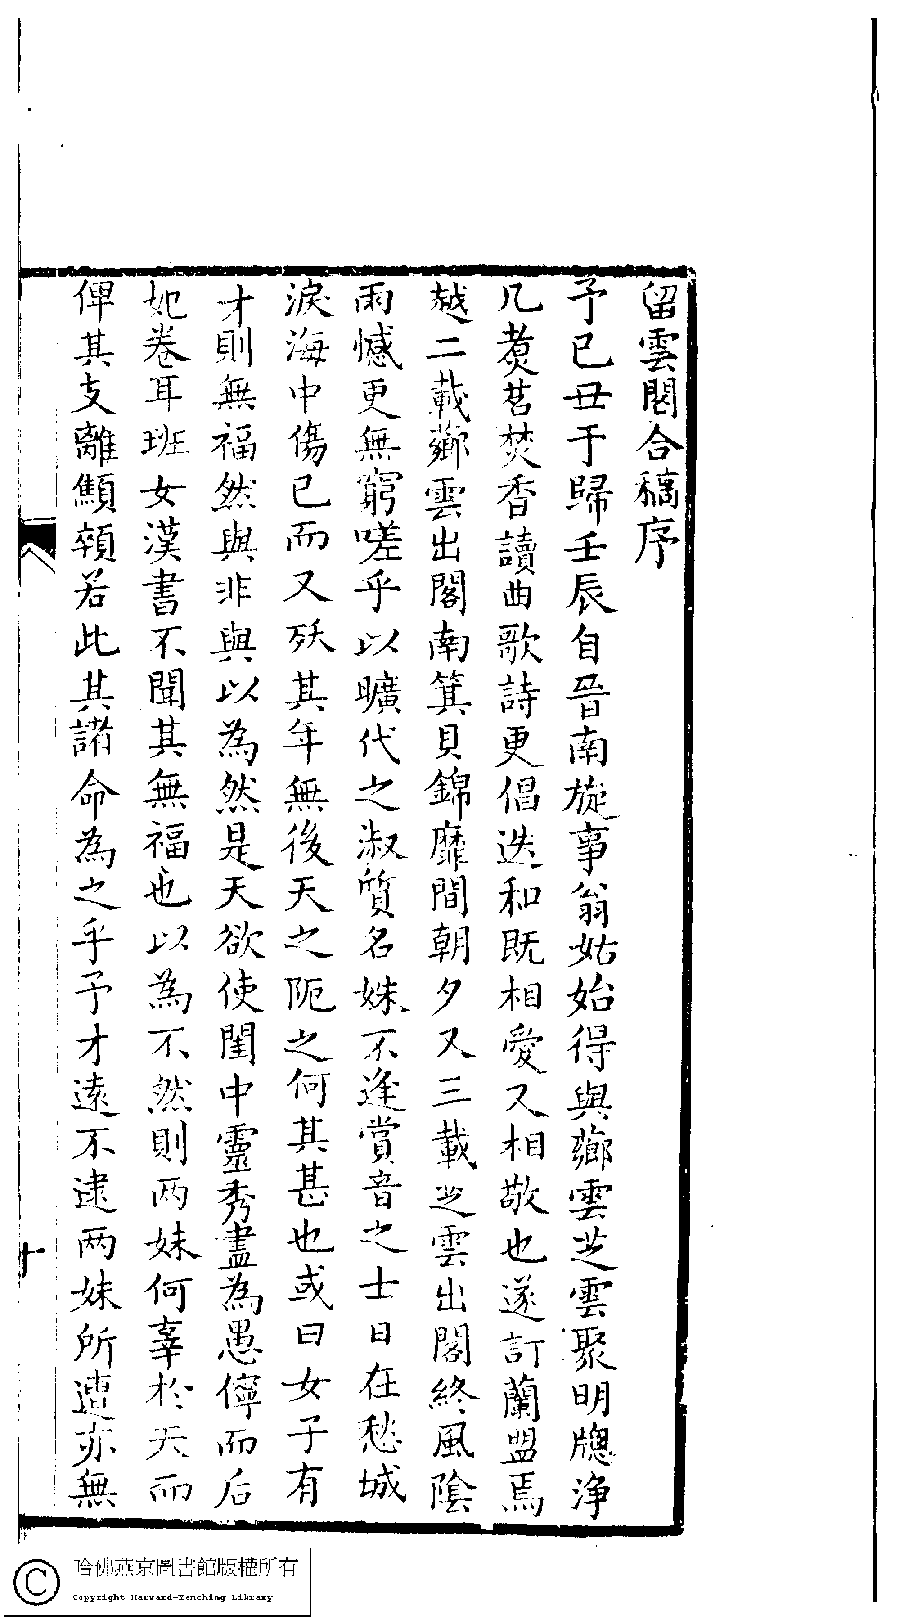 留雲閣合稿序
予已丑于歸壬辰自晉南旋事翁姑始得與薌雲芷雲聚明牕浄
几煑茗焚香讀曲歌詩更倡迭和既相愛又相敬也遂訂蘭盟焉
越二載薌雲出閣南箕貝錦靡間朝夕又三載芷雲出閣終風陰
雨憾更無窮嗟乎以曠代之淑質名姝不逢賞音之士日在愁城
淚海中傷已而又殀其年無後天之阨之何其甚也或曰女子有
才則無福然與非與以為然是天欲使閨中靈秀盡為愚儜而后
妃卷耳班女漢書不聞其無福也以為不然則两妹何辜於天而
俾其支離顦顇若此其諸命為之乎予才遠不逮两妹所遭亦無
十
哈佛燕京圖書館版權所有
Copyright Harvard-Yenching Library